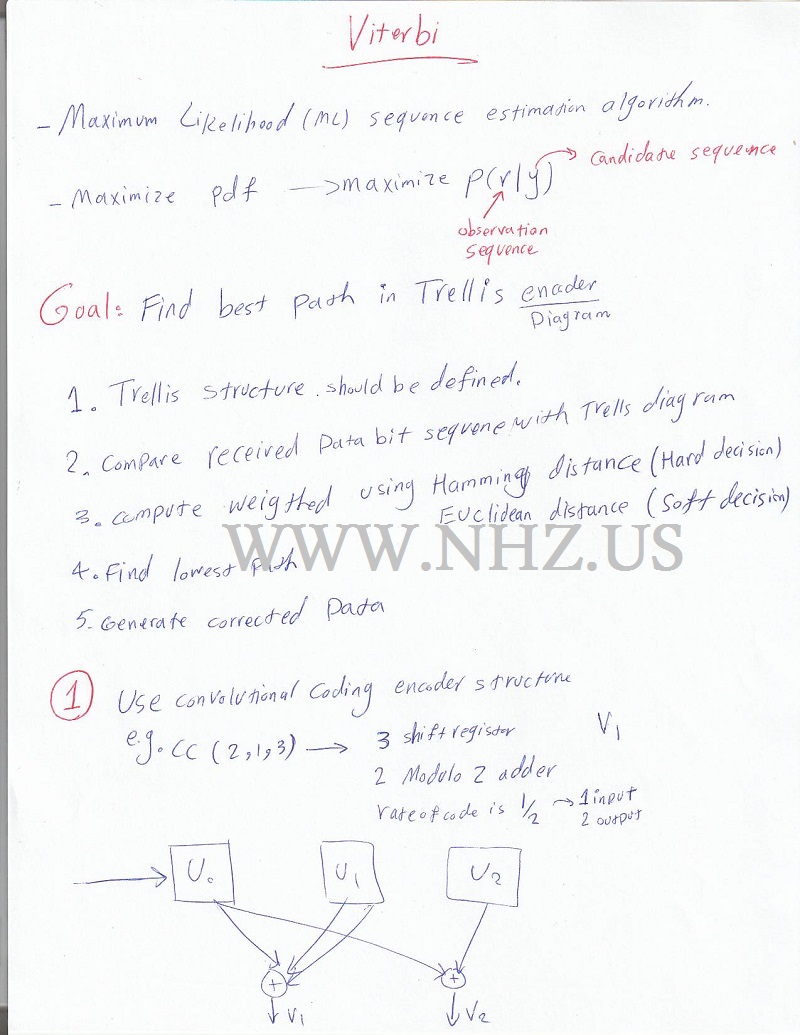 Viterbi
- Maximum Likelihood (ML) sequence estimation algorithm.
- Maximize pdf → maximize P(r|y) → candidate sequence
observation
sequence
Goal: Find best path in Trellis encoder
Diagram
1. Trellis structure should be defined.
2. Compare received Data bit sequene with Trells diagram
3. compute weigthed using Hamming distance (Hard decision)
Euclidean distance (Soft decision)
WWW.NHZ.US
4. Find lowest Path
5. Generate corrected Data
1 Use convolutional coding encoder structure
e.g. CC (2,1,3) → 3 shift registor V1
2 Modulo 2 adder
rate of code is 1/2 → 1 input
2 output
U0 U1 U2
+ +
V1 V2